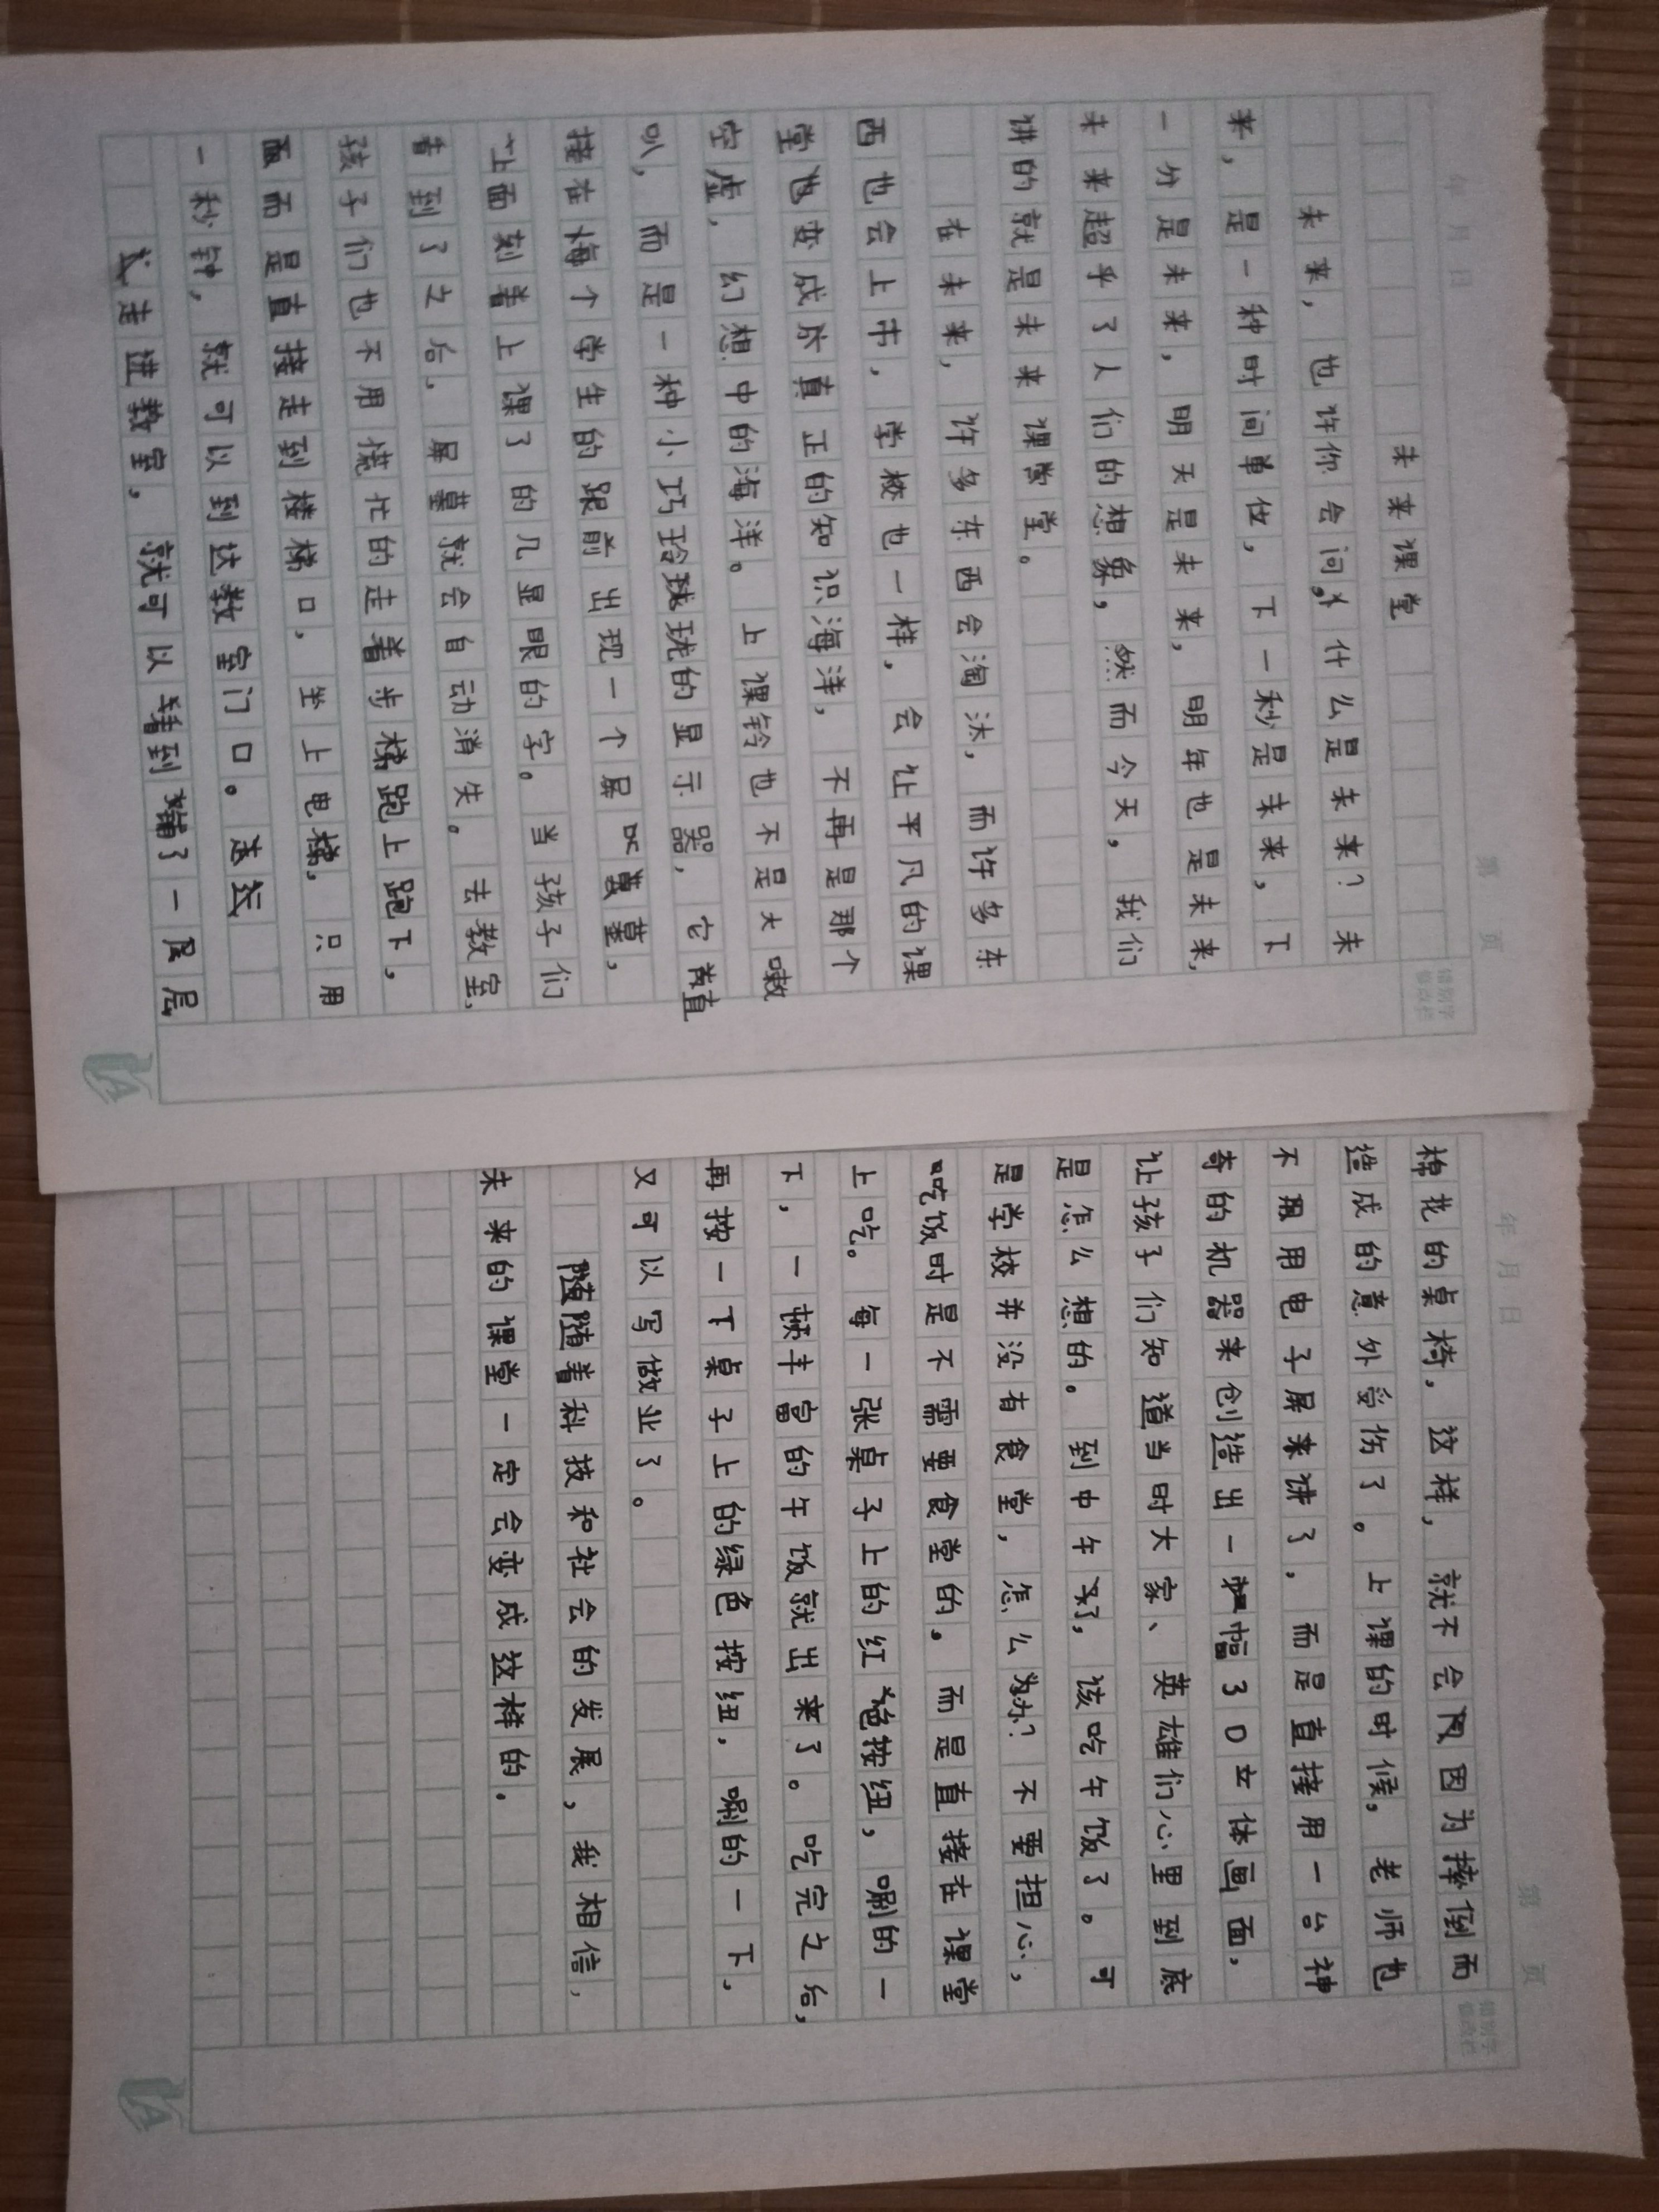 年 月 日
第 页
错别字
修改栏
未来课堂
未来，也许你会问，什么是未来？未
来，是一种时间单位，下一秒是未来，下
一分是未来，明天是未来，明年也是未来，
未来超乎了人们的想象，然而今天，我们
讲的就是未来课堂。
在未来，许多东西会淘汰，而许多东
西也会上市，学校也一样，会让平凡的课
堂也变成真正的知识海洋，不再是那个
空虚，幻想中的海洋。上课铃也不是大嗽
叭，而是一种小巧玲珑的显示器，它直
接在每个学生的跟前出现一个屏幕，
上面刻着上课了的几显眼的字。当孩子们
看到了之后，屏幕就会自动消失。去教室，
孩子们也不用慌忙的走着步梯跑上跑下，
而是直接走到楼梯口，坐上电梯，只用
一秒钟，就可以到达教室门口。
走进教室，就可以看到铺了一层层
年 月 日
第 页
错别字
修改栏
棉花的桌椅，这样，就不会因为摔倒而
造成的意外受伤了。上课的时候，老师也
不用用电子屏来讲了，而是直接用一台神
奇的机器来创造出一幅3D立体画面，
让孩子们知道当时大家、英雄们心里到底
是怎么想的。到中午了，该吃午饭了。可
是学校并没有食堂，怎么办？不要担心，
吃饭时是不需要食堂的。而是直接在课堂
上吃。每一张桌子上的红色按纽，唰的一
下，一顿丰富的午饭就出来了。吃完之后，
再按一下桌子上的绿色按纽，唰的一下，
又可以写做业了。
随着科技和社会的发展，我相信，
未来的课堂一定会变成这样的．